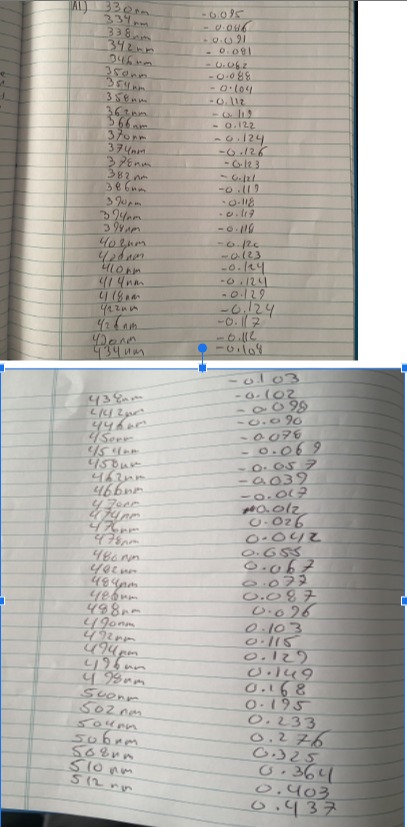 A1) 330nm -0.095
334nm -0.086
338nm -0.091
342nm -0.081
346nm -0.082
350nm -0.088
354nm -0.104
358nm -0.112
362nm -0.119
366nm -0.122
370nm -0.124
374nm -0.126
378nm -0.123
382nm -0.121
386nm -0.119
390nm -0.118
394nm -0.119
398nm -0.118
402nm
406nm -0.123
410nm -0.124
414nm -0.124
418nm -0.129
422nm -0.124
426nm -0.117
430nm -0.112
434nm -0.108
438nm -0.103
442nm -0.102
446nm -0.098
450nm -0.090
454nm -0.078
458nm -0.069
462nm -0.057
466nm -0.039
470nm -0.017
474nm 0.012
476nm 0.026
478nm 0.042
480nm 0.055
482nm 0.067
484nm 0.077
486nm 0.087
488nm 0.096
490nm 0.103
492nm 0.115
494nm 0.129
496nm 0.149
498nm 0.168
500nm 0.195
502nm 0.233
504nm 0.276
506nm 0.325
508nm 0.364
510nm 0.403
512nm 0.437